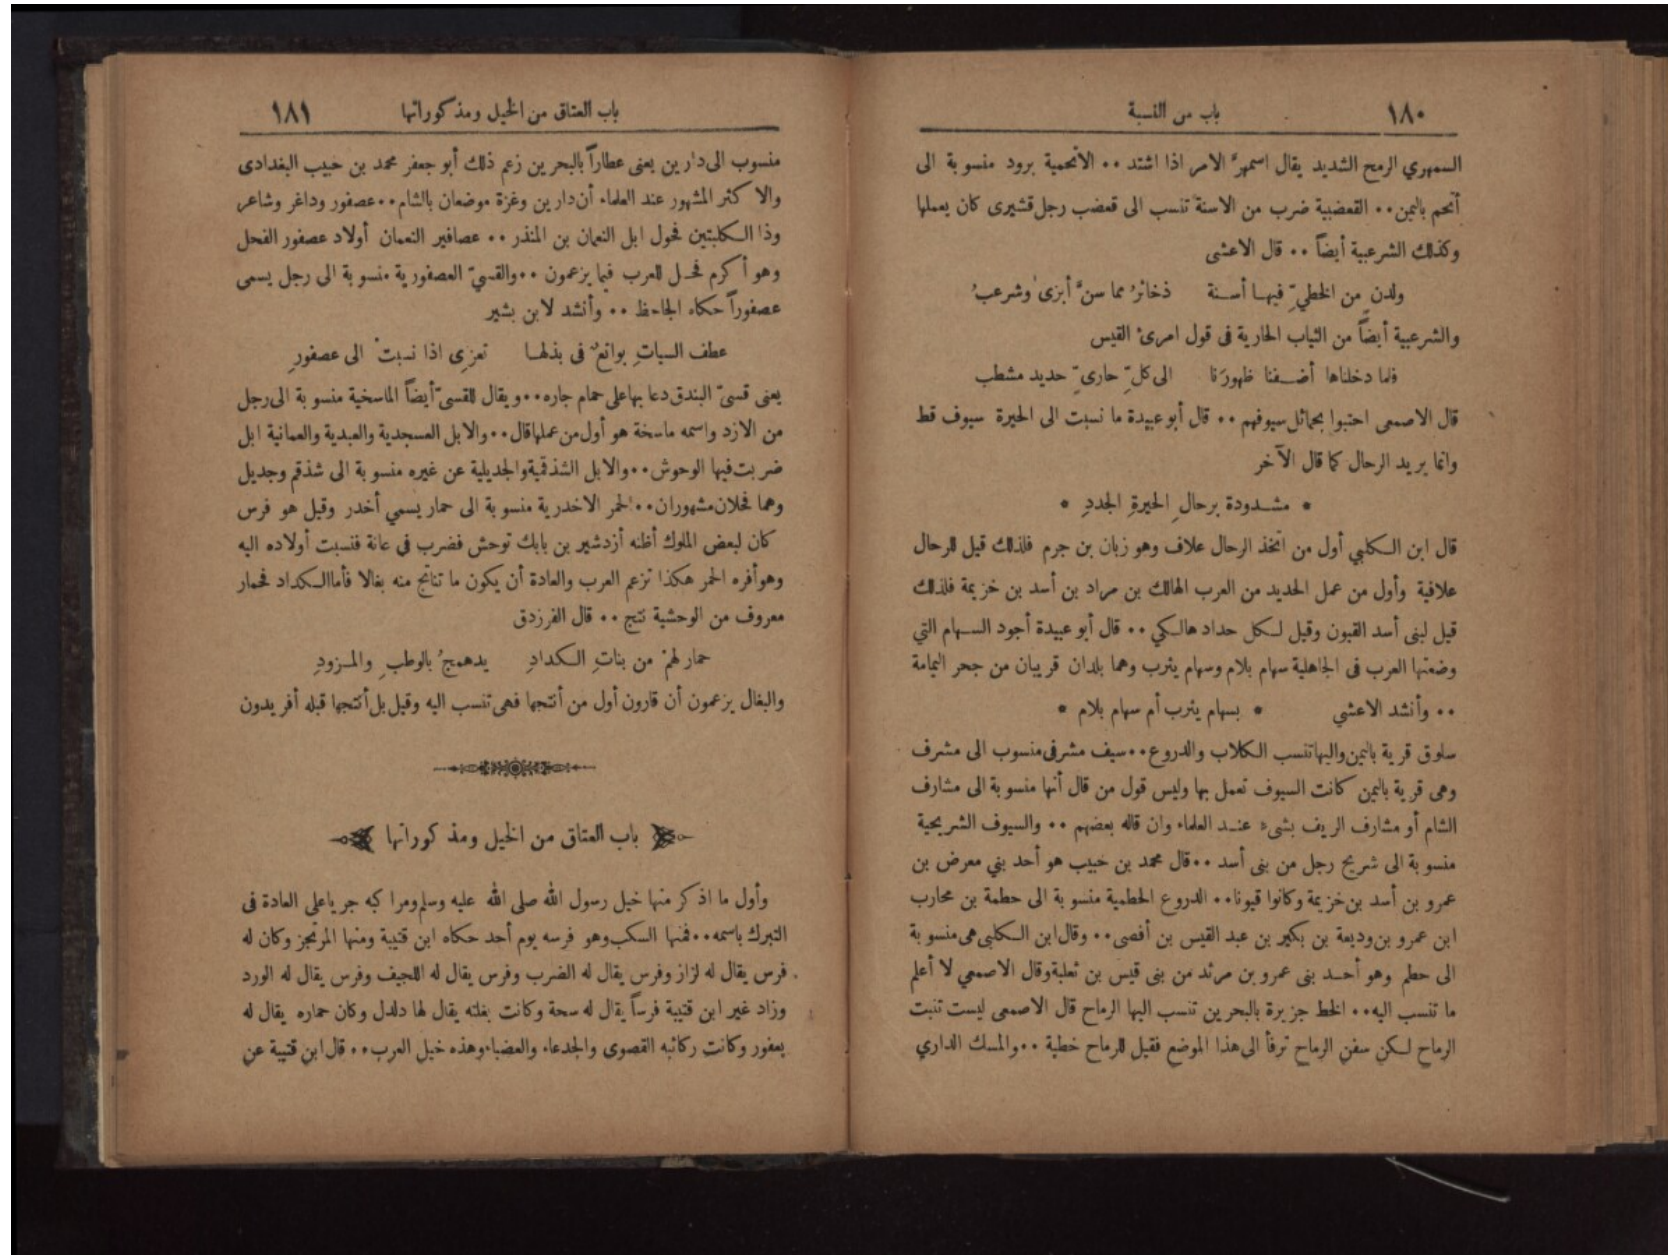 ١٨٠
باب من النسبة
السمهري الرمح الشديد يقال اسمهرَّ الامر اذا اشتد ٠٠ الأتحمية برود منسوبة الى
أتحم باليمن٠٠ القعضبية ضرب من الاسنة تنسب الى قعضب رجل قشيرى كان يعملها
وكذلك الشرعبية أيضاً ٠٠ قال الاعشى
ولدنٍ من الخطيِّ فيهـا أسـنة ذخائرُ مما سنَّ أبزى وشرعبُ
والشرعبية أيضاً من الثياب الحارية فى قول امرئ القيس
فلما دخلناها أضـفنا ظهورَنا الى كلِّ حاريّ حديد مشطب
قال الاصمعى احتبوا بحمائل سيوفهم ٠٠ قال أبو عبيدة ما نسبت الى الحيرة سيوف قط
وانما يريد الرحال كما قال الآخر
* مشـدودة برحالِ الحيرةِ الجددِ *
قال ابن الـكلبي أول من اتخذ الرحال علاف وهو زبان بن جرم فلذلك قيل للرحال
علافية وأول من عمل الحديد من العرب الهالك بن مراد بن أسد بن خزيمة فلذلك
قيل لبنى أسد القيون وقيل لـكل حداد هالـكي ٠٠ قال أبو عبيدة أجود السـهام التي
وضعتها العرب فى الجاهلية سهام بلام وسهام يثرب وهما بلدان قريبان من حجر اليمامة
٠٠ وأنشد الاعشي * بسهام يثرب أم سهام بلام *
سلوق قرية باليمن واليها تنسب الـكلاب والدروع٠٠سيف مشرفى منسوب الى مشرف
وهى قرية باليمن كانت السيوف تعمل بها وليس قول من قال أنها منسوبة الى مشارف
الشام أو مشارف الريف بشىء عنـد العلماء وان قاله بعضهم ٠٠ والسيوف الشريحية
منسوبة الى شريح رجل من بنى أسد ٠٠قال محمد بن حبيب هو أحد بني معرض بن
عمرو بن أسد بن خزيمة وكانوا قيونا٠٠ الدروع الحطمية منسوبة الى حطمة بن محارب
ابن عمرو بن وديعة بن بكير بن عبد القيس بن أفصى٠٠ وقال ابن الـكلبى هى منسوبة
الى حطم وهو أحـد بنى عمرو بن مرثد من بنى قيس بن ثعلبة وقال الاصمعي لا أعلم
ما تنسب اليه٠٠ الخط جزيرة بالبحرين تنسب اليها الرماح قال الاصمعى ليست تنبت
الرماح لـكن سفن الرماح ترفأ الى هذا الموضع فقيل للرماح خطية ٠٠والمسك الداري
باب العتاق من الخيل ومذكوراتها
١٨١
منسوب الى دارين يعنى عطاراً بالبحرين زعم ذلك أبو جعفر محمد بن حبيب البغدادى
والاكثر المشهور عند العلماء أن دارين وغزة موضعان بالشام٠٠عصفور وداغر وشاعر
وذا الـكلبتين فحول ابل النعمان بن المنذر ٠٠ عصافير النعمان أولاد عصفور الفحل
وهو أكرم فحـل للعرب فيما يزعمون ٠٠والقسيّ العصفورية منسوبة الى رجل يسمى
عصفوراً حكاه الجاحظ ٠٠ وأنشد لابن بشير
عطف السيات بوانعٌ فى بذلهـا تعزى اذا نسبتْ الى عصفورِ
يعنى قسىّ البندق دعا بها على حمام جاره٠٠ويقال للقسىّ أيضاً الماسخية منسوبة الى رجل
من الازد واسمه ماسخة هو أول من عملها قال٠٠والابل العسجدية والعبدية والعمانية ابل
ضربت فيها الوحوش٠٠والابل الشذقمية والجديلية عن غيره منسوبة الى شذقم وجديل
وهما فحلان مشهوران٠٠الحمر الاخدرية منسوبة الى حمار يسمي أخدر وقيل هو فرس
كان لبعض الملوك أظنه أزدشير بن بابك توحش فضرب فى عانة فنسبت أولاده اليه
وهو أفره الحمر هكذا تزعم العرب والعادة أن يكون ما تناتج منه بغالا فأما الـكداد فحمار
معروف من الوحشية نتج ٠٠ قال الفرزدق
حمار لهمْ من بناتِ الـكدادِ يدهمجُ بالوطبِ والمـزودِ
والبغال يزعمون أن قارون أول من أنتجها فهى تنسب اليه وقيل بل أنتجها قبله أفريدون
باب العتاق من الخيل ومذكوراتها
وأول ما اذكر منها خيل رسول الله صلى الله عليه وسلم ومراكبه جرياعلى العادة فى
التبرك باسمه٠٠فمنها السكب وهو فرسه يوم أحد حكاه ابن قتيبة ومنها المرتجز وكان له
فرس يقال له لزاز وفرس يقال له الضرب وفرس يقال له اللحيف وفرس يقال له الورد
وزاد غير ابن قتيبة فرساً يقال له سحة وكانت بغلته يقال لها دلدل وكان حماره يقال له
يعفور وكانت ركائبه القصوى والجدعاء والعضباء وهذه خيل العرب٠٠ قال ابن قتيبة عن